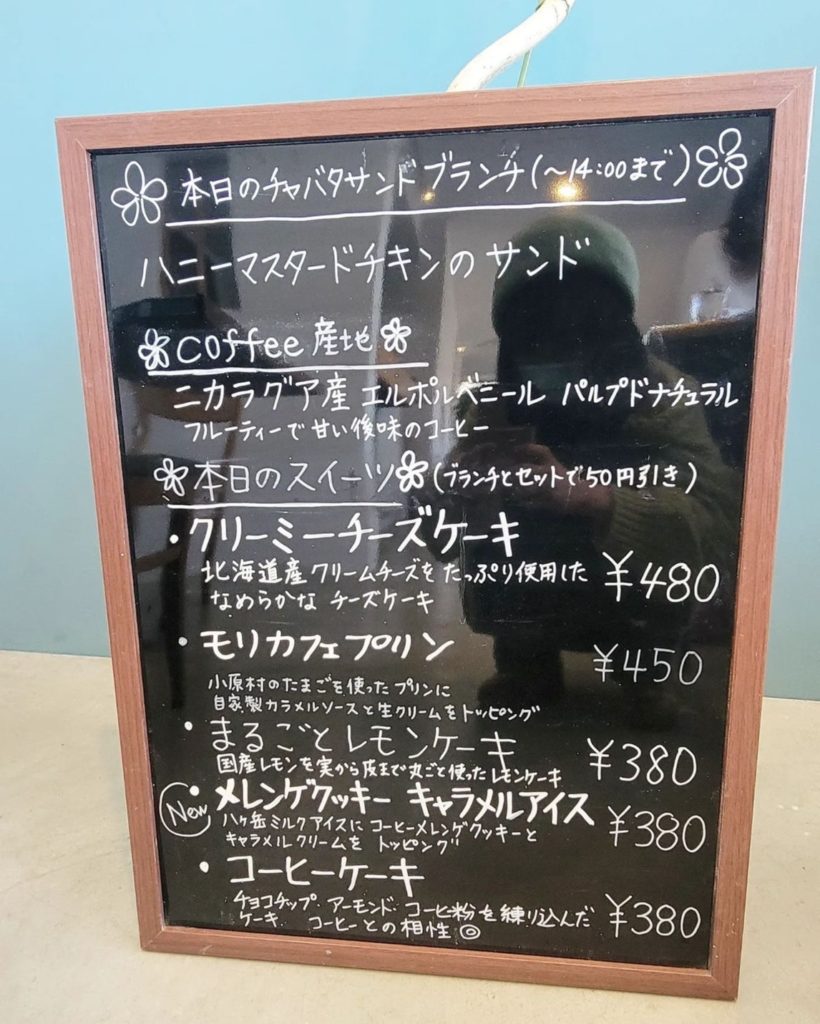 本日のチャバタサンドブランチ(〜14:00まで)
ハニーマスタードチキンのサンド
coffee 産地
ニカラグア産 エルポルベニール パルプドナチュラル
フルーティーで甘い後味のコーヒー
本日のスイーツ(ブランチとセットで50円引き)
・クリーミーチーズケーキ
北海道産クリームチーズをたっぷり使用した ¥480
なめらかな チーズケーキ
・モリカフェプリン ¥450
小原村のたまごを使ったプリンに
自家製カラメルソースと生クリームをトッピング
・まるごとレモンケーキ ¥380
国産レモンを実から皮まで丸ごと使ったレモンケーキ
New ・メレンゲクッキー キャラメルアイス ¥380
八ヶ岳ミルクアイスにコーヒーメレンゲクッキーと
キャラメルクリームを トッピング
・コーヒーケーキ
チョコチップ・アーモンド・コーヒー粉を練り込んだ ¥380
ケーキ. コーヒーとの相性◎